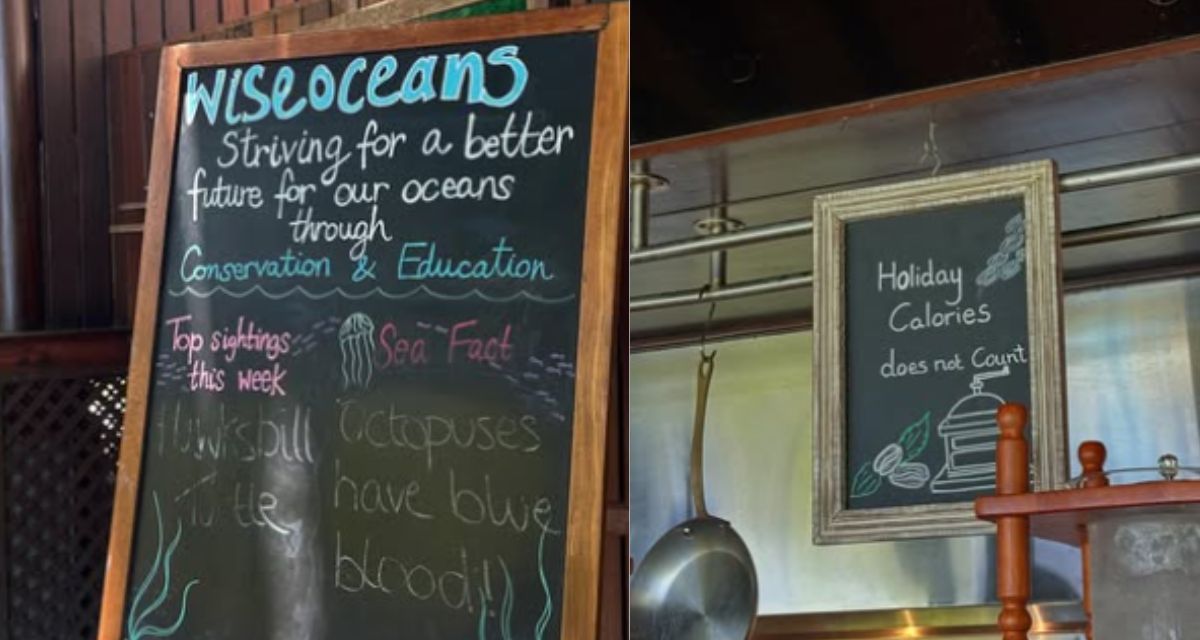 wiseoceans
Striving for a better
future for our oceans
through
Conservation & Education
Top sightings
this week
Hawksbill
Turtle
Sea Fact
Octopuses
have blue
blood!!
Holiday
Calories
does not Count